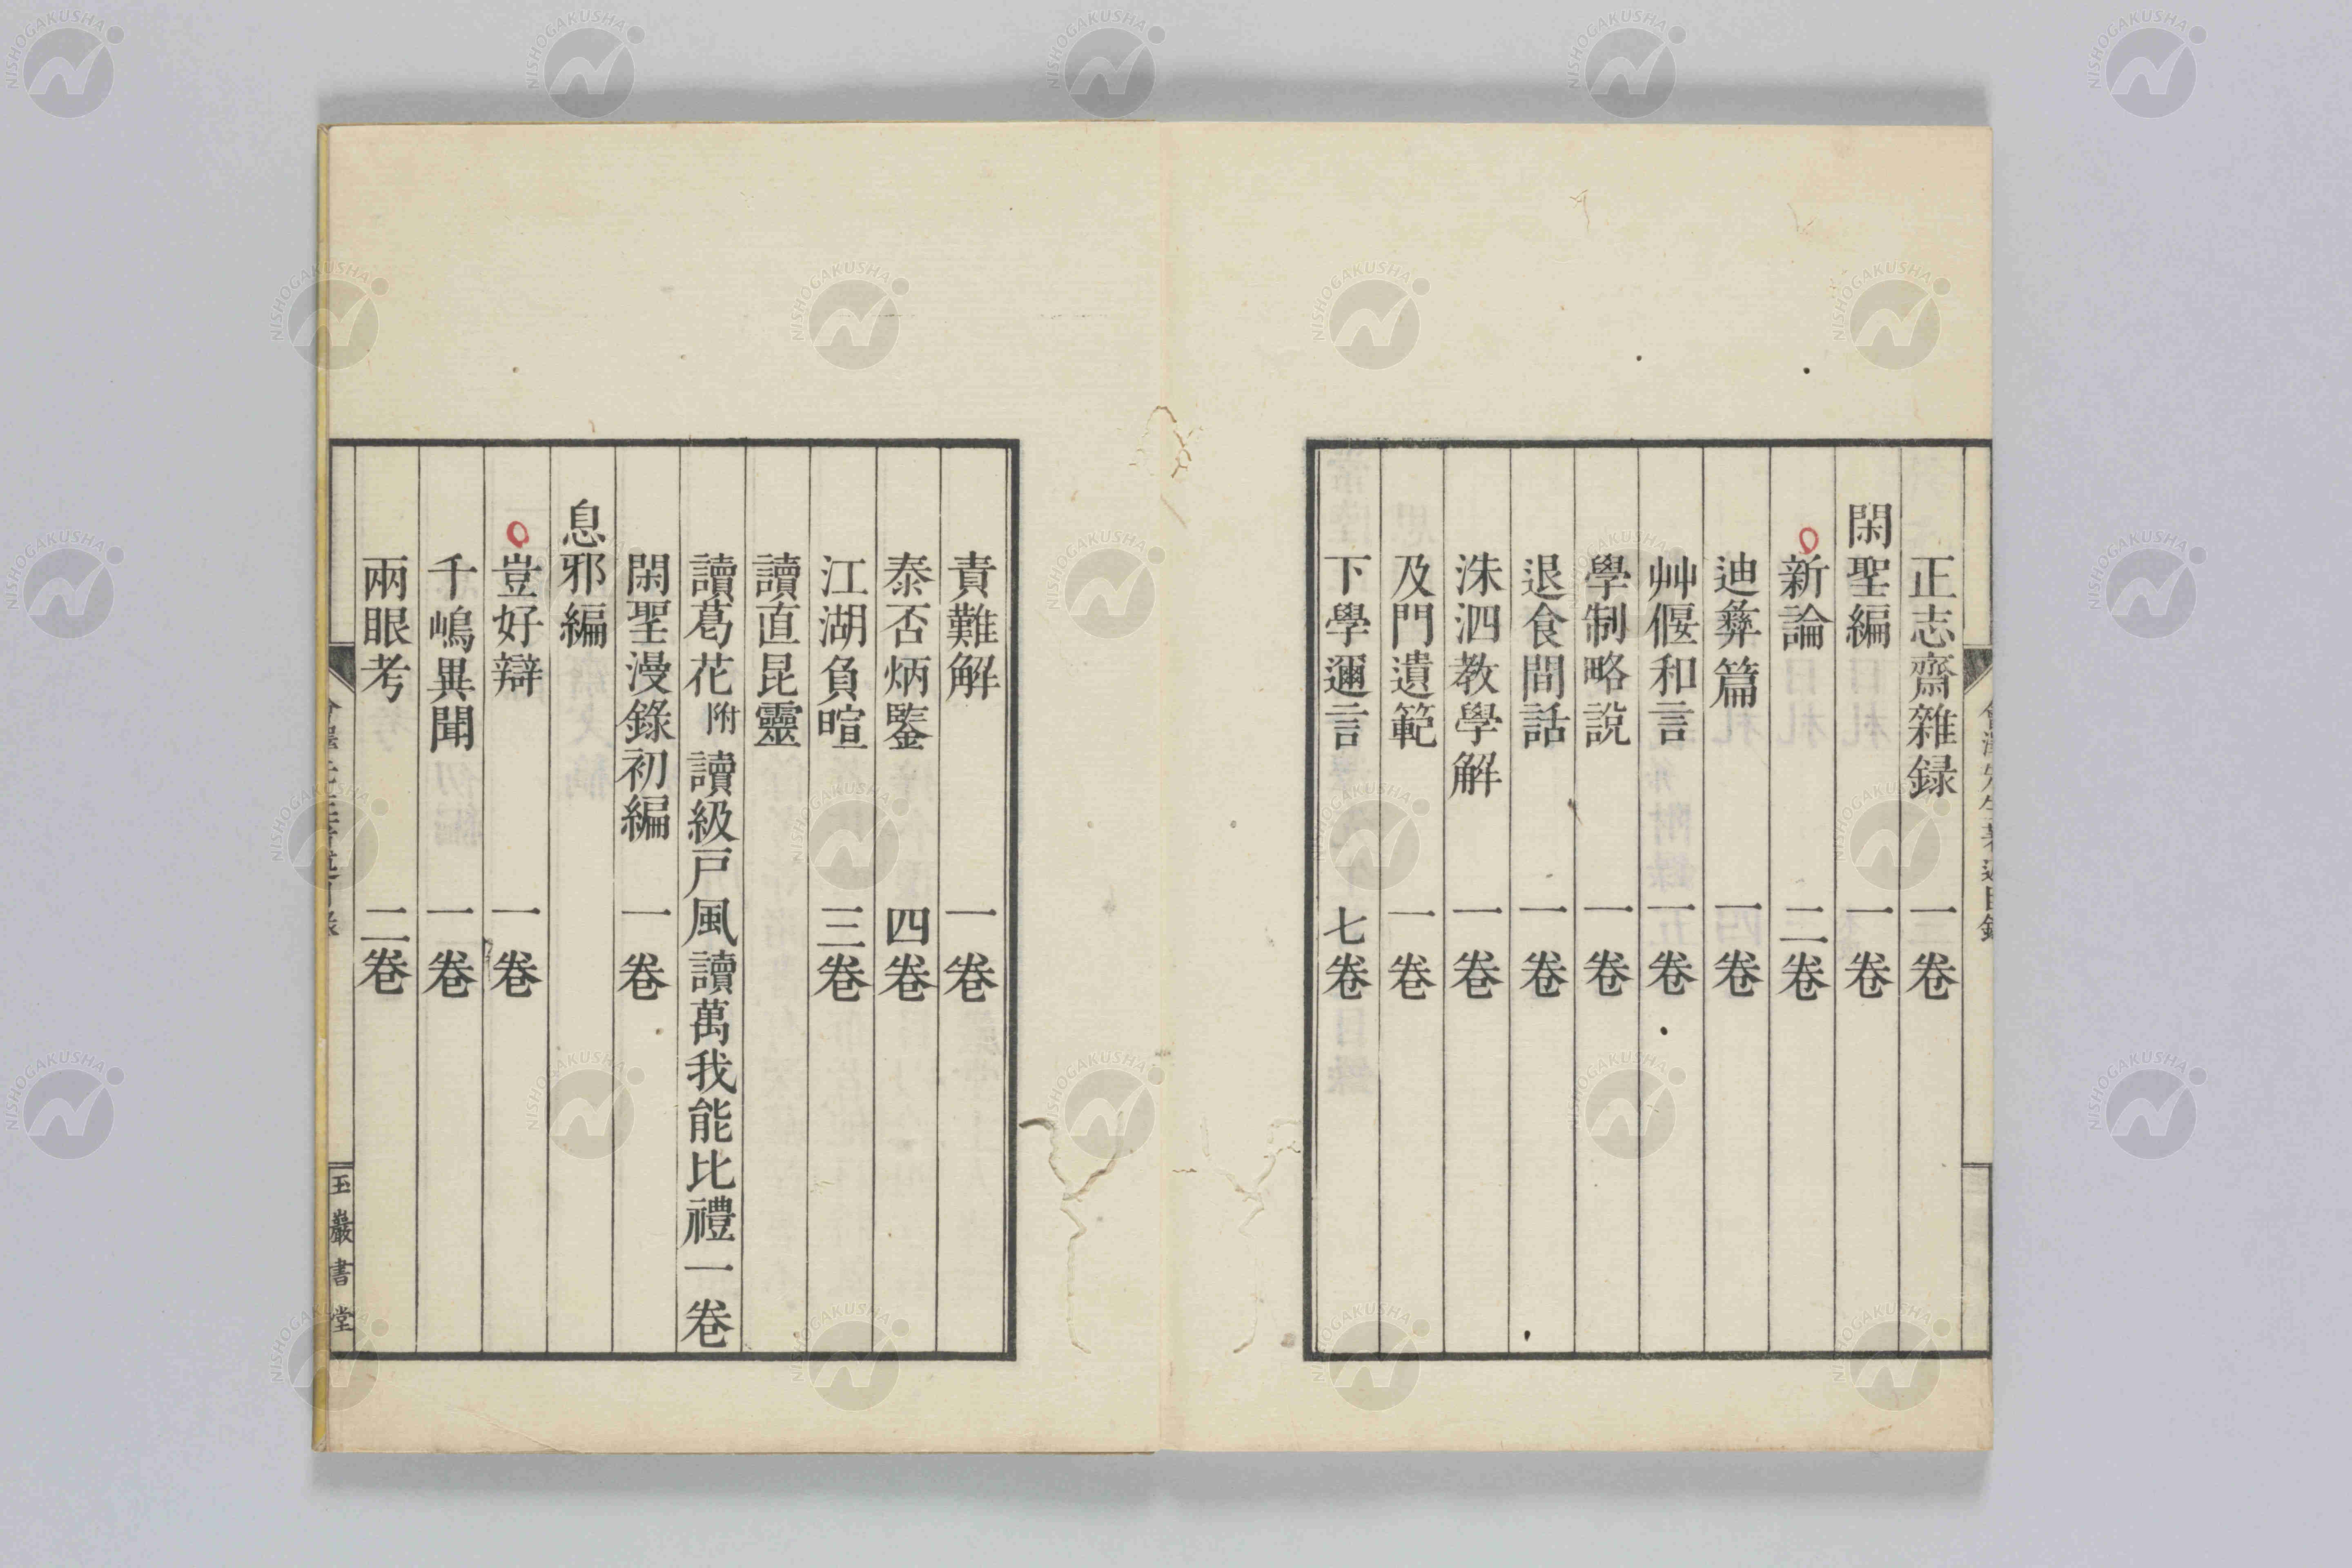 正志齋雜録 一卷
閑聖編 一卷
新論 二卷
迪彝篇 一卷
艸偃和言 一卷
學制略説 一卷
退食間話 一卷
洙泗教學解 一卷
及門遺範 一卷
下學邇言 七卷
責難解 一卷
泰否炳鑒 四卷
江湖負暄 三卷
讀直昆靈
讀葛花 附 讀級戸風讀萬我能比禮一卷
閑聖漫錄初編 一卷
息邪編
豈好辯 一卷
千嶋異聞 一卷
兩眼考 二卷
玉巖書堂
NISHOGAKUSHA